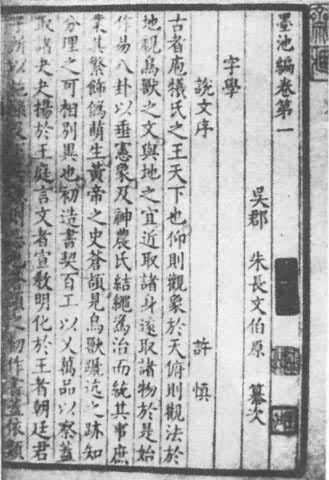 墨池編卷第一
吳郡 朱長文伯原 纂次
字學
說文序 許慎
古者庖犧氏之王天下也仰則觀象於天俯則觀法於
地視鳥獸之文與地之宜近取諸身遠取諸物於是始
作易八卦以垂憲象及神農氏結繩為治而統其事庶
業其繁飾偽萌生黃帝之史蒼頡見鳥獸蹏迒之跡知
分理之可相別異也初造書契百工以乂萬品以察蓋
取諸夬夬揚於王庭言文者宣教明化於王者朝廷君
所以施祿及則忌頡之初作書蓋依類